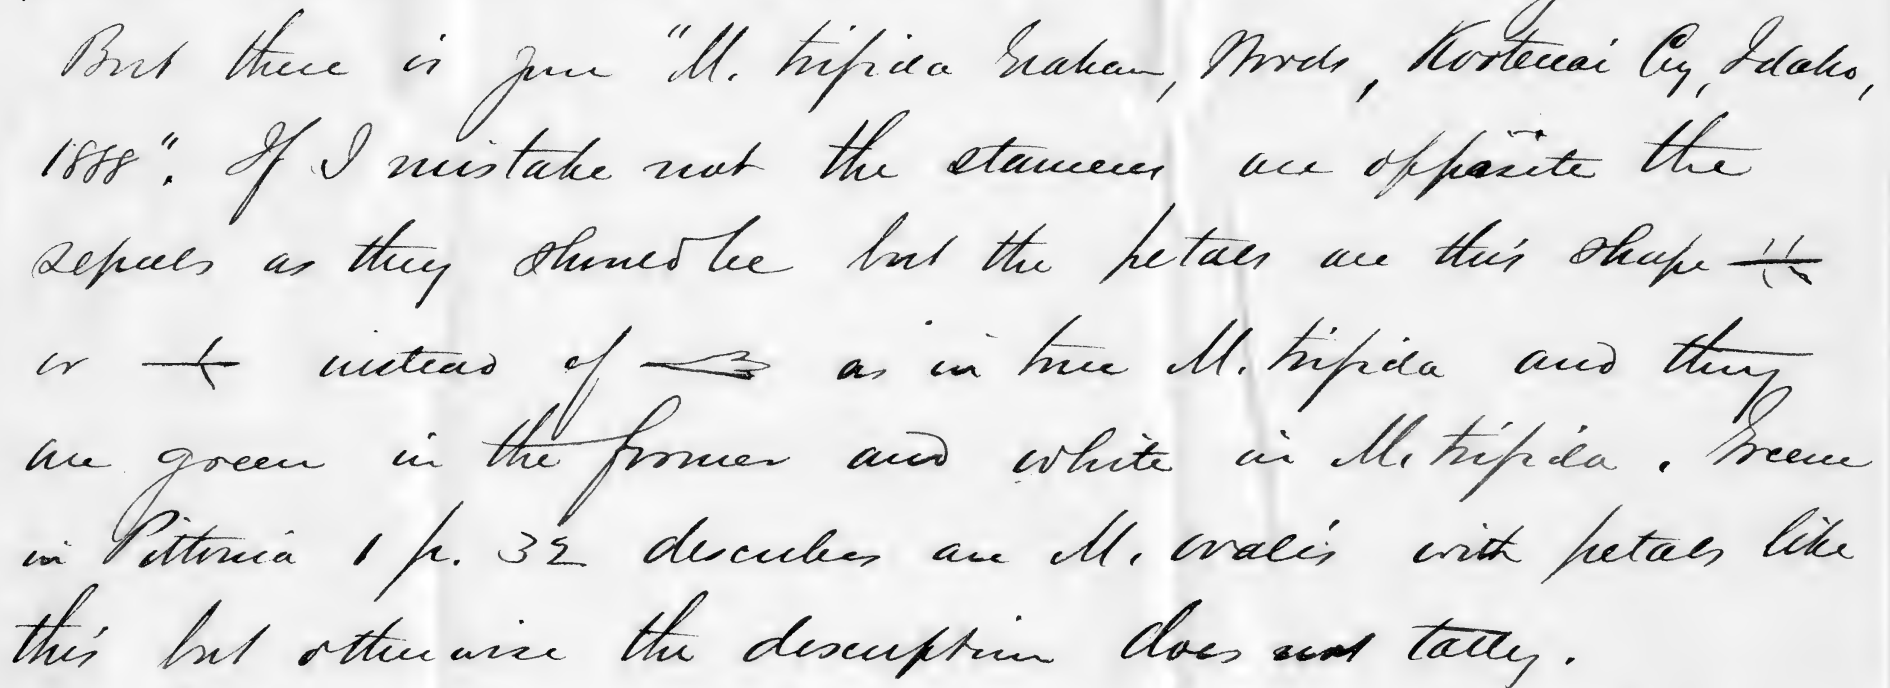 But there is your "M. trifida Graham, Woods, Kootenai Cy, Idaho,
1888". If I mistake not the stamens are opposite the
sepals as they should be but the petals are this shape
or instead of as in true M. trifida and they
are green in the former and white in M. trifida. Greene
in Pittonia 1 p. 32 describes an M. ovalis with petals like
this but otherwise the description does not tally.